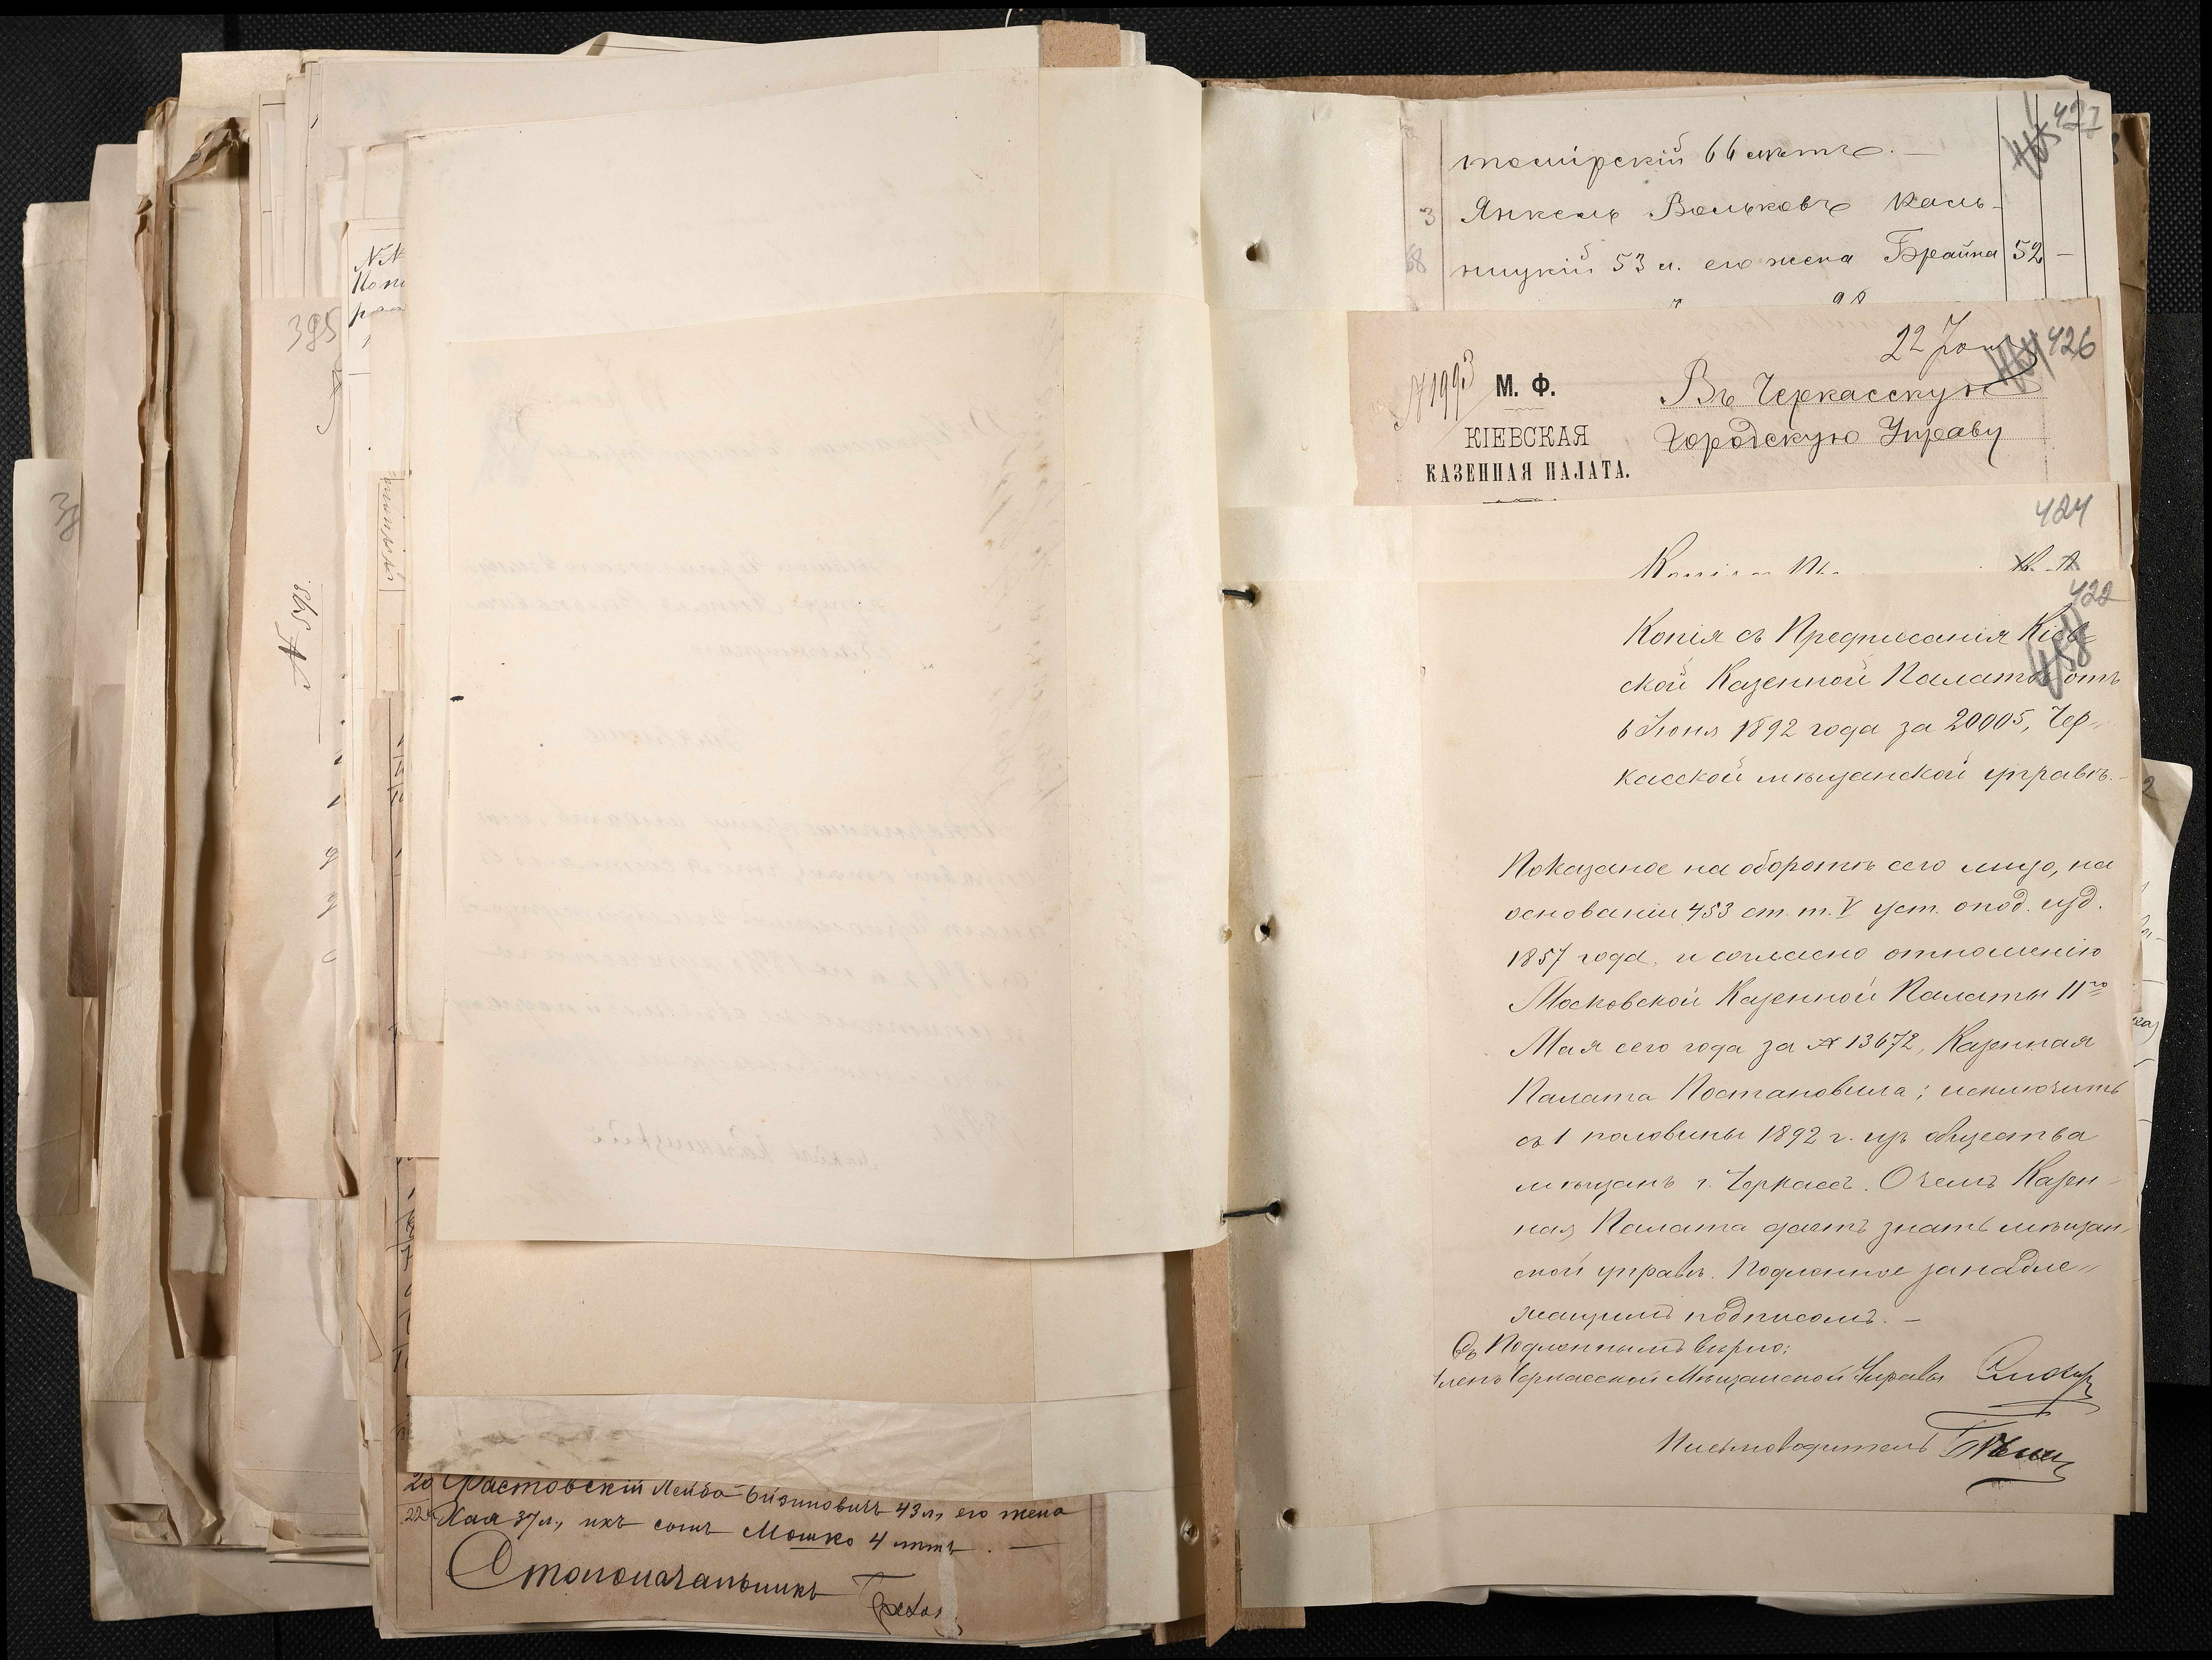 385
№ 595.
NN
20 Фастовскій Лейба 43 л, его жена
22 Хая 37 л, ихъ сынъ Мошко 4 лѣтъ. —
Столоначальникъ
427
томірскій 66 лѣтъ. —
3 Янкель Вольковъ Каль-
68 ницкій 53 л. его жена Брайна 52 —
22 Іюн
426
№ 1993
М. Ф.
КІЕВСКАЯ
КАЗЕННАЯ ПАЛАТА.
Въ Черкасскую
Городскую Управу
424
Копія
422
458
Копія съ Предписанія Кіев-
ской Казенной Палаты отъ
6 Іюня 1892 года за 20005, Чер„
касской мѣщанской управѣ. -
Показаное на оборотѣ сего лицо, на
основаніи 453 ст. т. V уст. о под. изд.
1857 года, и согласно отношенію
Московской Казенной Палаты 11го
Мая сего года за № 13672, Казенная
Палата Постановила; исключить
съ 1 половины 1892 г. изъ общества
мѣщанъ г. Черкасъ. О чемъ Казен-
ная Палата даетъ знать мѣщан-
ской управѣ. Подленное за надле„
жащимъ подписомъ. —
Съ Подленнымъ вѣрно:
Членъ Черкасской Мѣщанской Управы
Письмоводитель